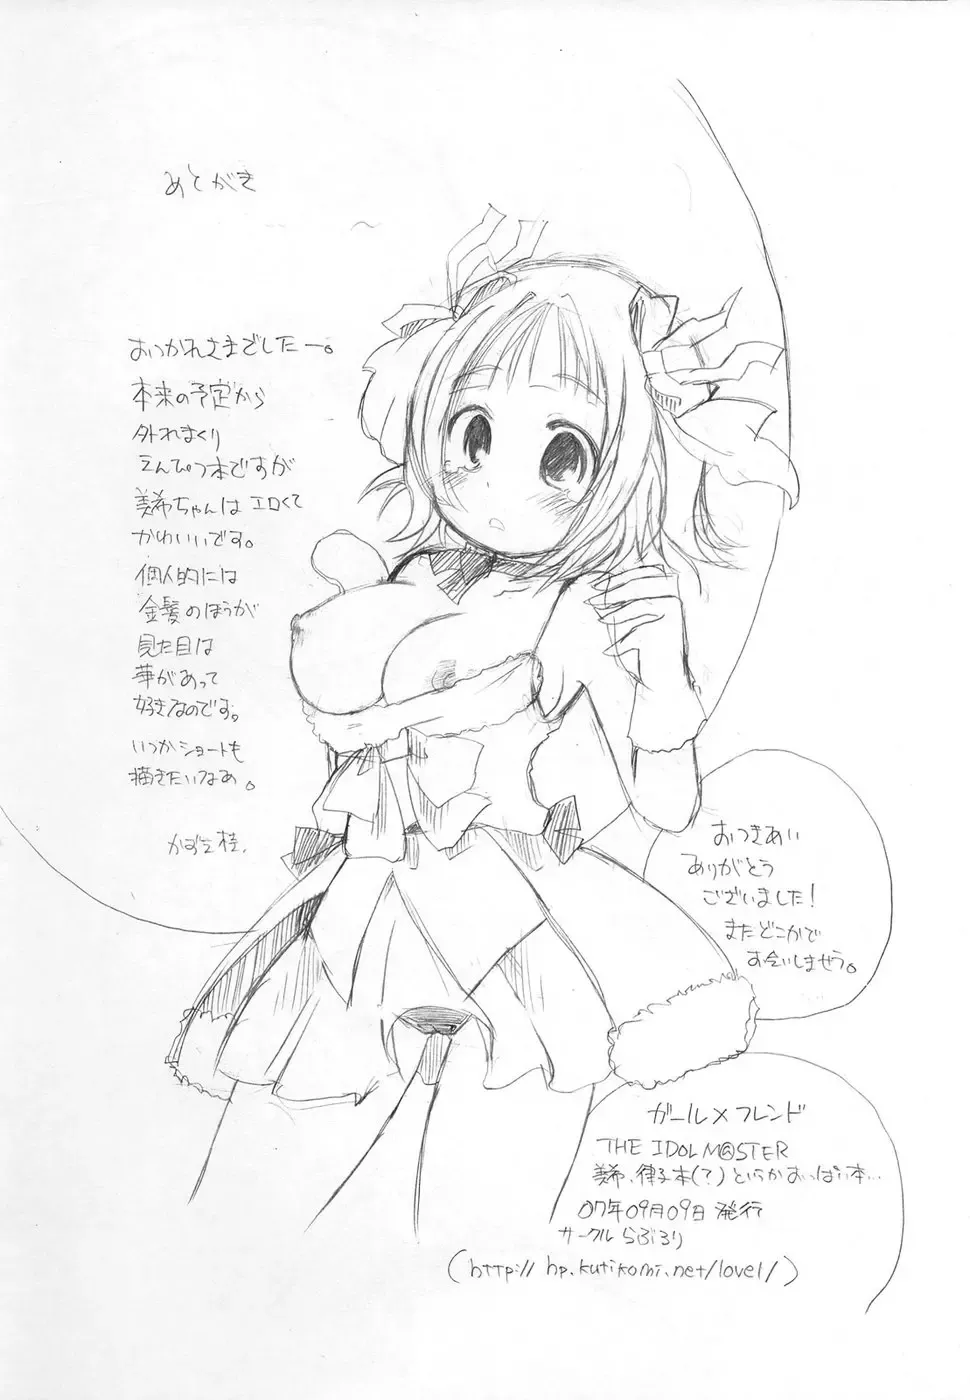 あとがき
おつかれさまでしたー。
本来の予定から
外れまくり
えんぴつ本ですが
美希ちゃんはエロくて
かわいいです。
個人的には
金髪のほうが
見た目は
華があって
好きなのです。
いつかショートも
描きたいなあ。
かずと桂.
おつきあい
ありがとう
ございました!
またどこかで
お会いしませう。
ガール×フレンド
THE IDOLM@STER
美希、律子本(?)というかおっぱい本…
07年09月09日発行
サークル らぶろり
(http://hp.kutikomi.net/lovel/)